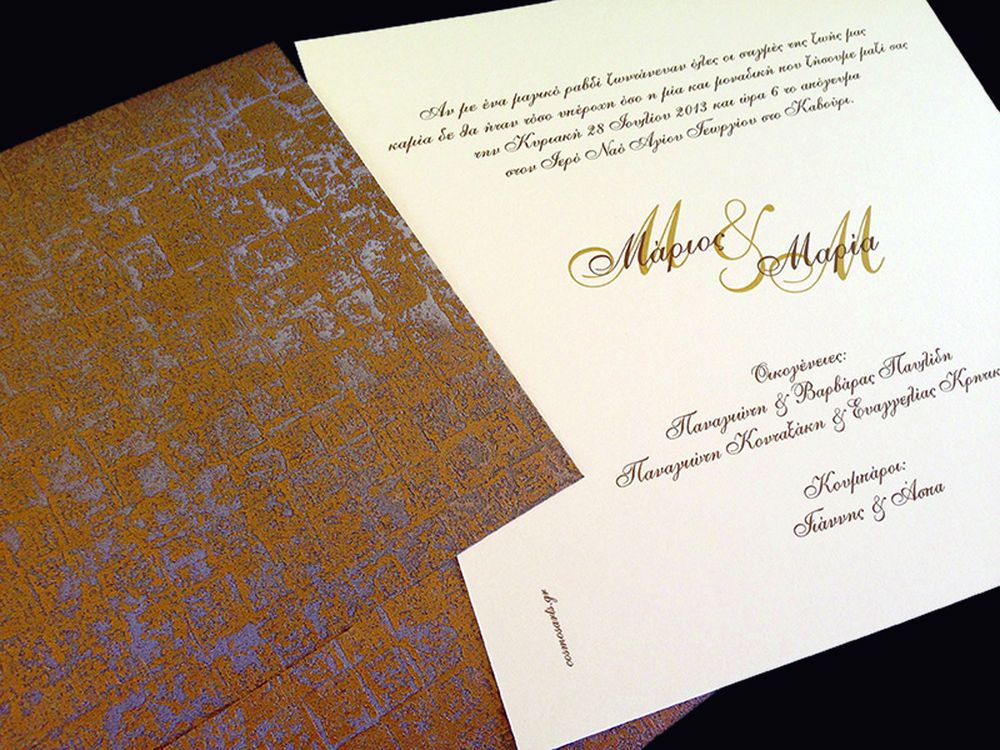 Αν με ένα μαγικό ραβδί ζωντάνευαν όλες οι στιγμές της ζωής μας
καμία δε θα ήταν τόσο υπέροχη όσο η μία και μοναδική που ζήσουμε μαζί σας
την Κυριακή 28 Ιουλίου 2013 και ώρα 6 το απόγευμα
στον Ιερό Ναό Αγίου Γεωργίου στο Καβούρι.
M & M
Μάριος Μαρία
Οικογένειες:
Παναγιώτη & Βαρβάρας Παυλίδη
Παναγιώτη Κονταξάκη & Ευαγγελίας Κρητικ
Κουμπάροι:
Γιάννης & Άσπα
cosmosarts.gr